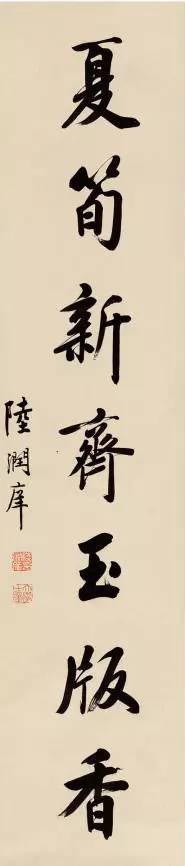 夏筍新齊玉版香
陸潤庠